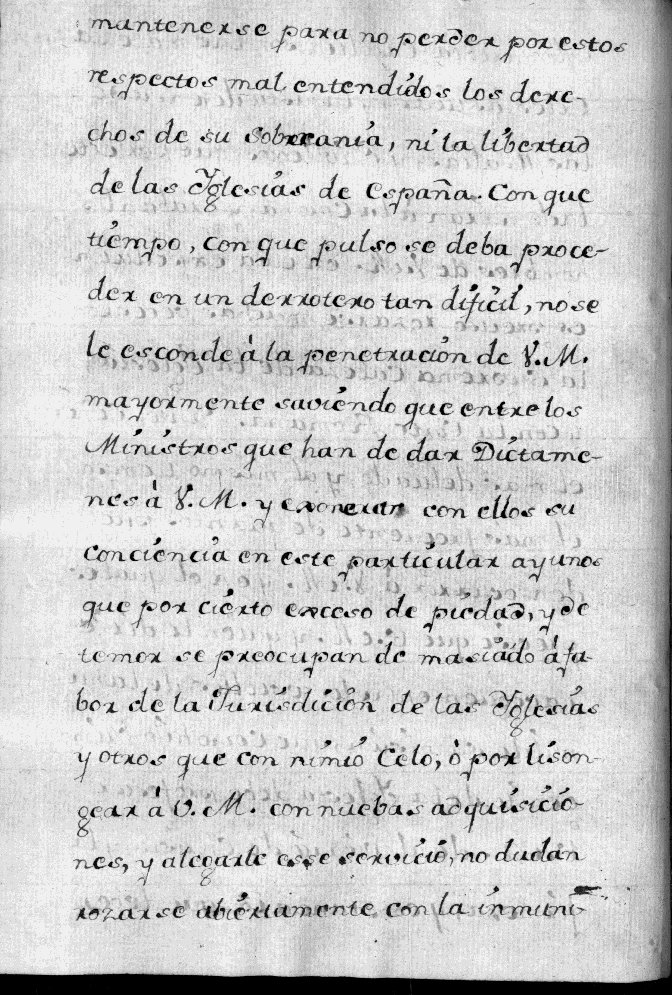 mantenerse para no perder por estos
respectos mal entendidos los dere-
chos de su Soberania, ni la libertad
de las Yglesias de España. Con que
tiempo, con que pulso se deba proce-
der en un derrotero tan dificil, no se
le esconde à la penetracion de V.M.
mayormente saviendo que entre los
Ministros que han de dar Dictame-
nes à V.M. y exonerar con ellos su
conciencia en este particular ay unos
que por cierto exceso de piedad, y de
temor se preocupan de masiado à fa-
bor de la Jurisdicion de las Yglesias
y otros que con nimio Celo, ò por lison-
gear à V.M. con nuebas adquisicio-
nes, y alegarle esse servicio, no dudan
rozarse abiertamente con la inmuni-